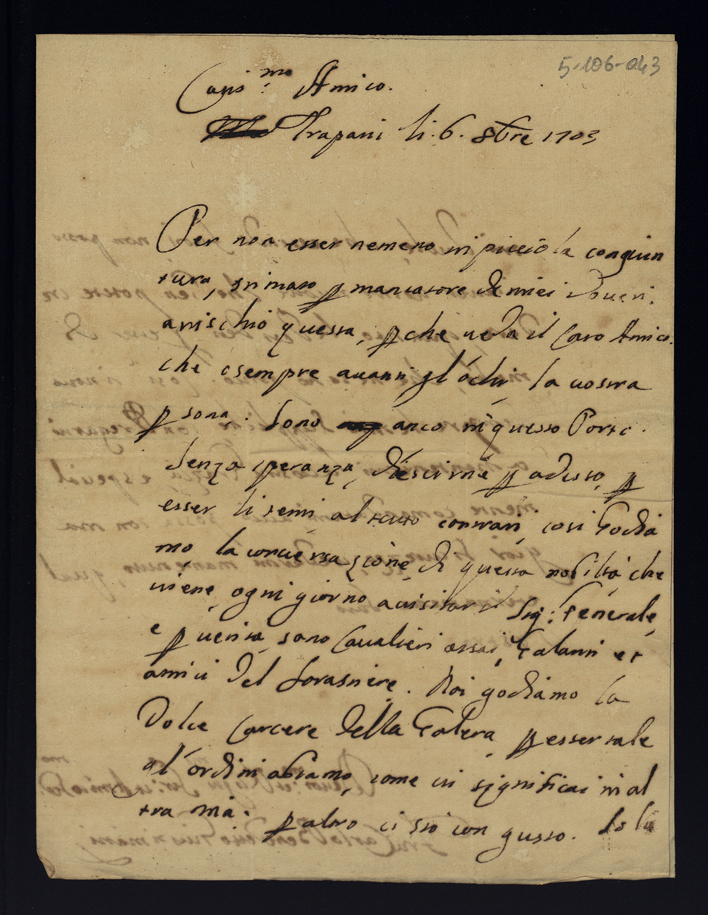 5-106-043
Caris.mo Amico.
Trapani li 6. 8bre 1703
Per non esser nemeno in picciola congiun
tura, stimato p mancatore de miei doveri,
arrischio questa, p che veda il Caro Amico.
che ò sempre avanti gl'ochi la vostra
p sona. Sono anco in questo Porto.
senza speranza, d'escirne p adesso, p
esser li venti al tutto contrarij così Godia
mo, la conversazione di questa nobiltà, che
viene, ogni giorno a visitar il Sig.r Generale,
e p verità, sono Cavalieri assai, Galanti et
amici del forastiere. Noi godiamo la
Dolce Carcere della Galera, p esser tale
gl'ordini abiamo, come vi significai in al
tra mia. p altro ci sto con gusto.